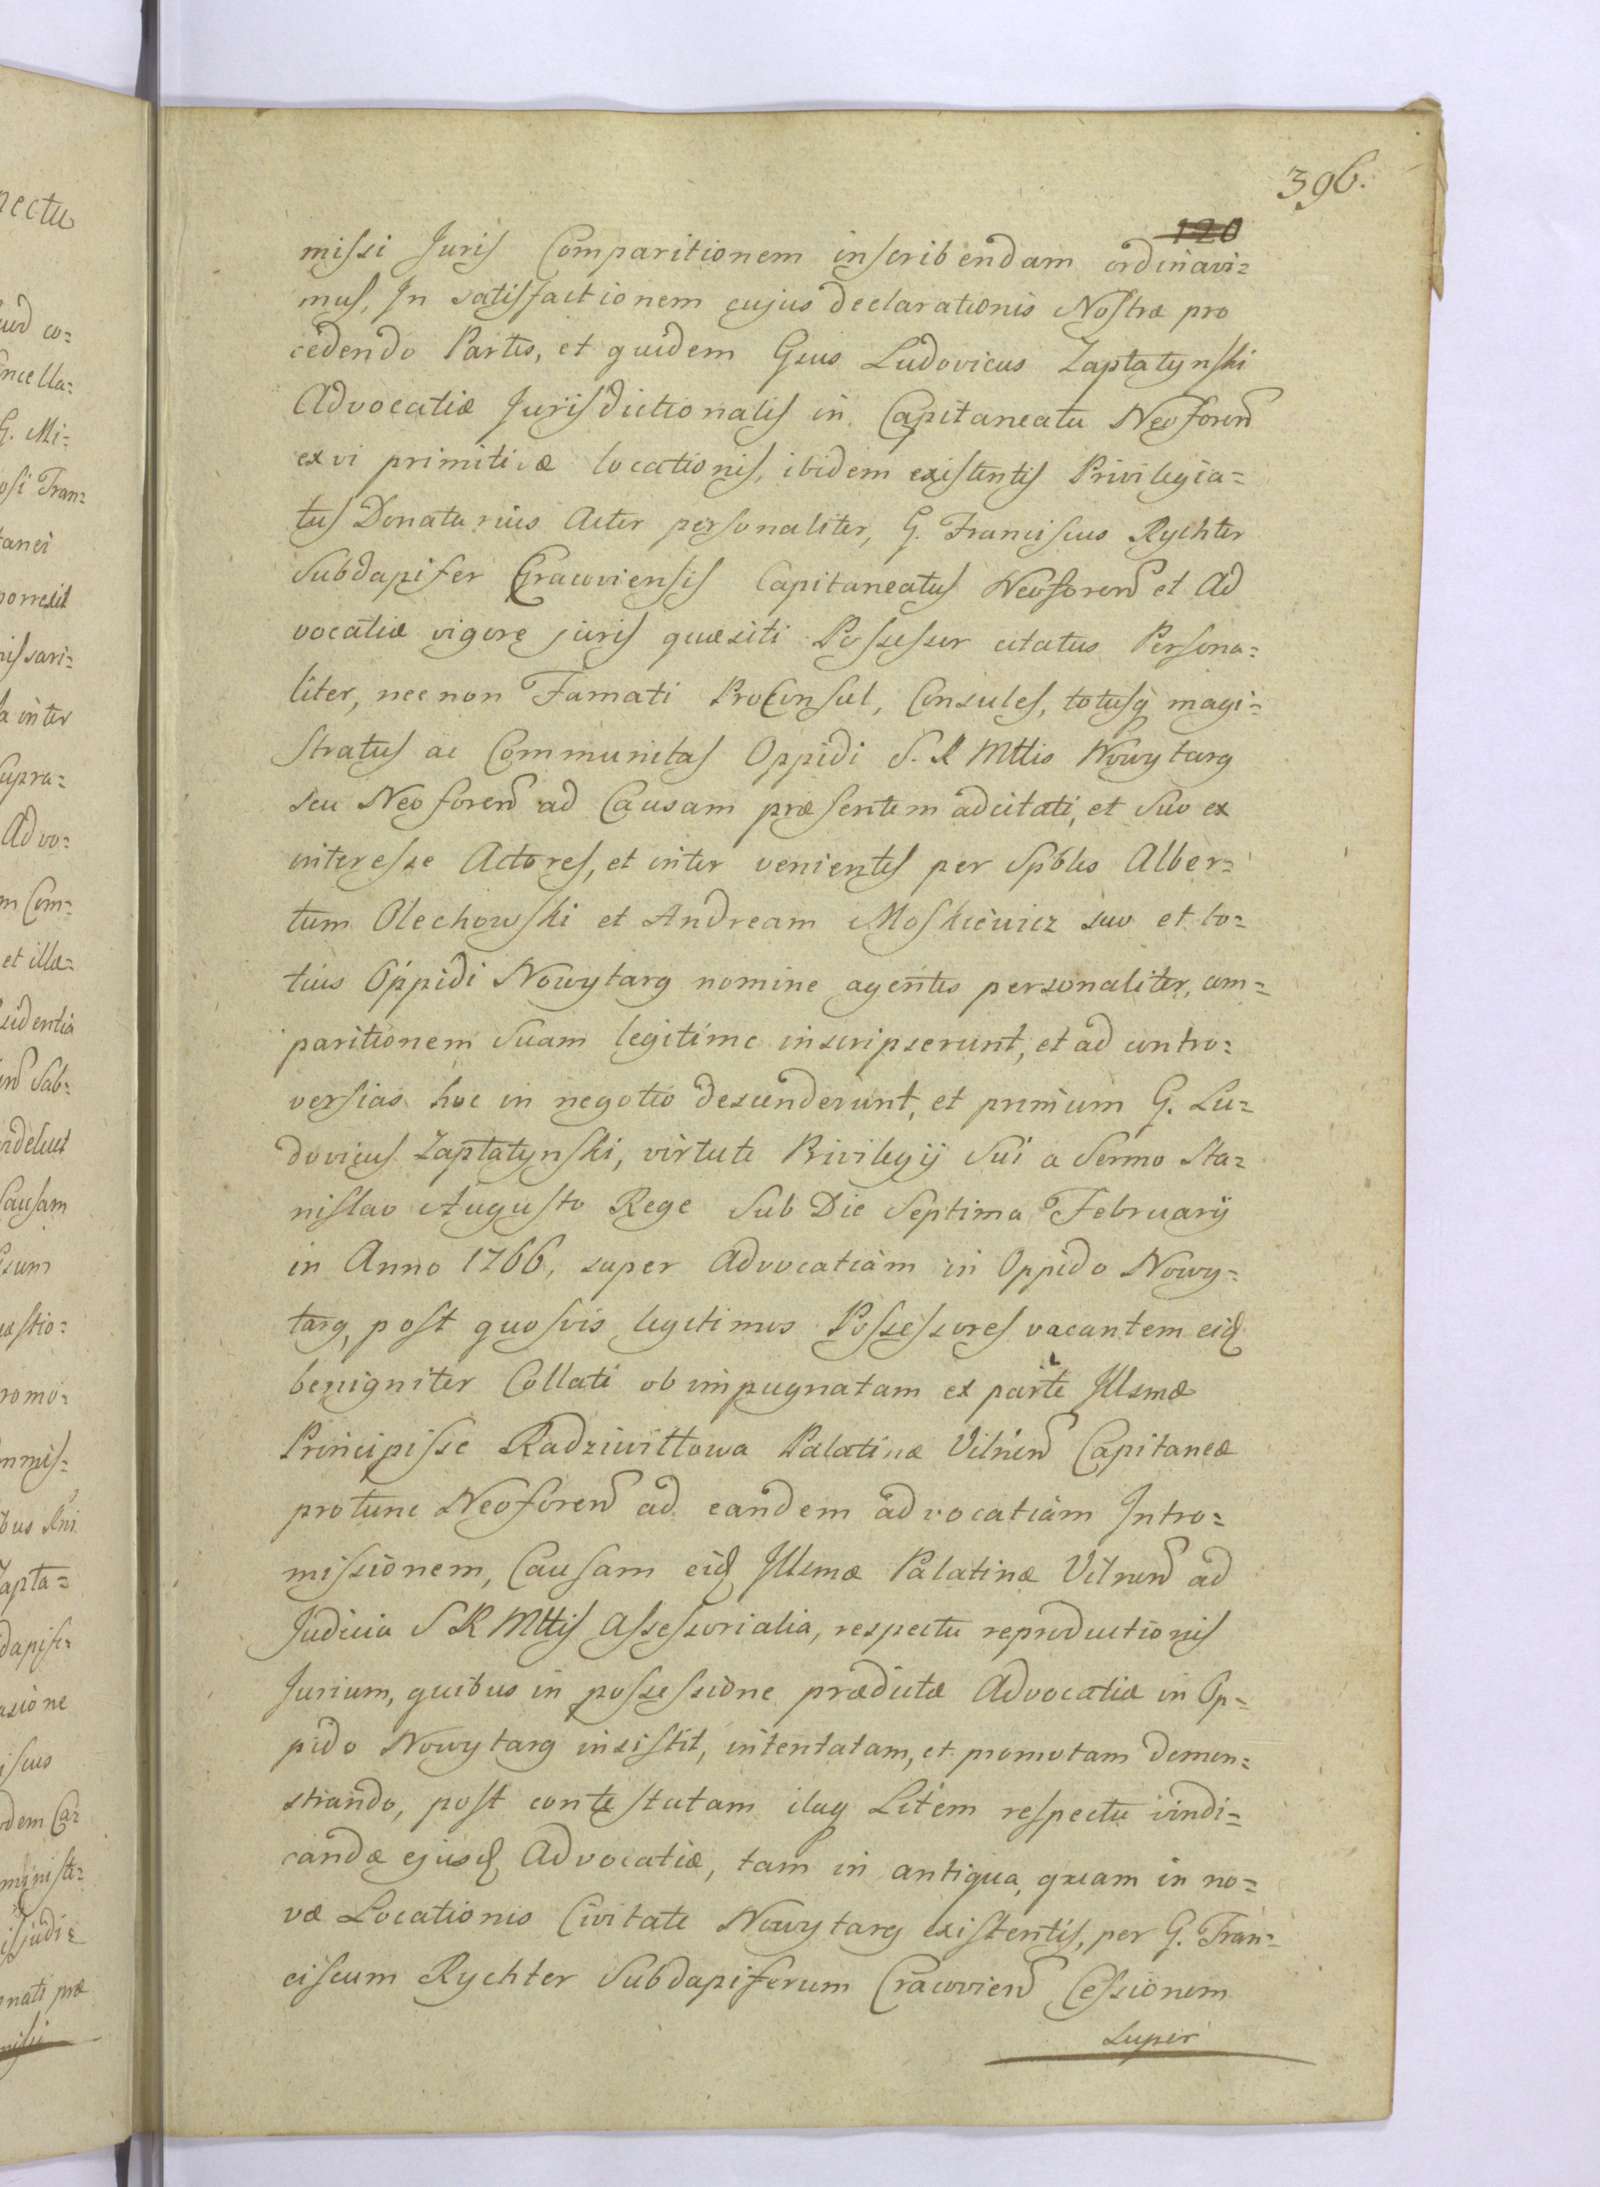 396.
120
missi Juris Comparitionem inscribendam ordinavi=
mus, In satisfactionem cujus declarationis Nostræ pro
cedendo Partes, et quidem Gsus Ludovicus Zaptatynski
Advocatiæ Jurisdictionalis in Capitaneatu Neoforen
ex vi primitivæ locationis, ibidem existentis Privilegia=
tus Donatarius Actor personaliter, G. Franciscus Rychter
Subdapifer Cracoviensis Capitaneatus Neoforen et Ad
vocatiæ vigore juris quæsiti Possessor citatus Persona=
liter, nec non Famati ProConsul, Consules, totusq magi=
stratus ac Communitas Oppidi S. R Mttis Nowytarg
seu Neoforen ad Causam præsentem adcitati, et suo ex
interesse Actores, et inter venientes per Spbles Alber=
tum Olechowski et Andream Moskiewicz suo et to=
tius Oppidi Nowytarg nomine agentes personaliter, com=
paritionem suam legitime inscripserunt, et ad contro=
versias hoc in negotio descenderunt, et primum G. Lu=
dovicus Zaptatynski, virtute Privilegij Sui a Sermo Sta=
nislao Augusto Rege sub Die Septima Februarij
in Anno 1766, super advocatiam in Oppido Nowy=
targ, post quosvis legitimos Possessores vacantem eid
benigniter Collati ob impugnatam ex parte Illsmæ
Principisse Radziwiłłowa Palatinæ Vilnen Capitaneæ
protunc Neoforen ad eandem advocatiam Intro=
missionem, Causam eid Illsmæ Palatinæ Vilnen ad
Judicia S R Mttis Assessorialia, respectu reproductionis
Jurium, quibus in possessione prædictæ Advocatiæ in Op=
pido Nowytarg insistit, intentatam, et promotam demon=
strando, post contestatam itaq Litem respectu vindi=
candæ ejusd Advocatiæ, tam in antiqua, quam in no=
væ Locationis Civitate Nowytarg existentis, per G. Fran=
ciscum Rychter Subdapiferum Cracovien Cessionem
Super